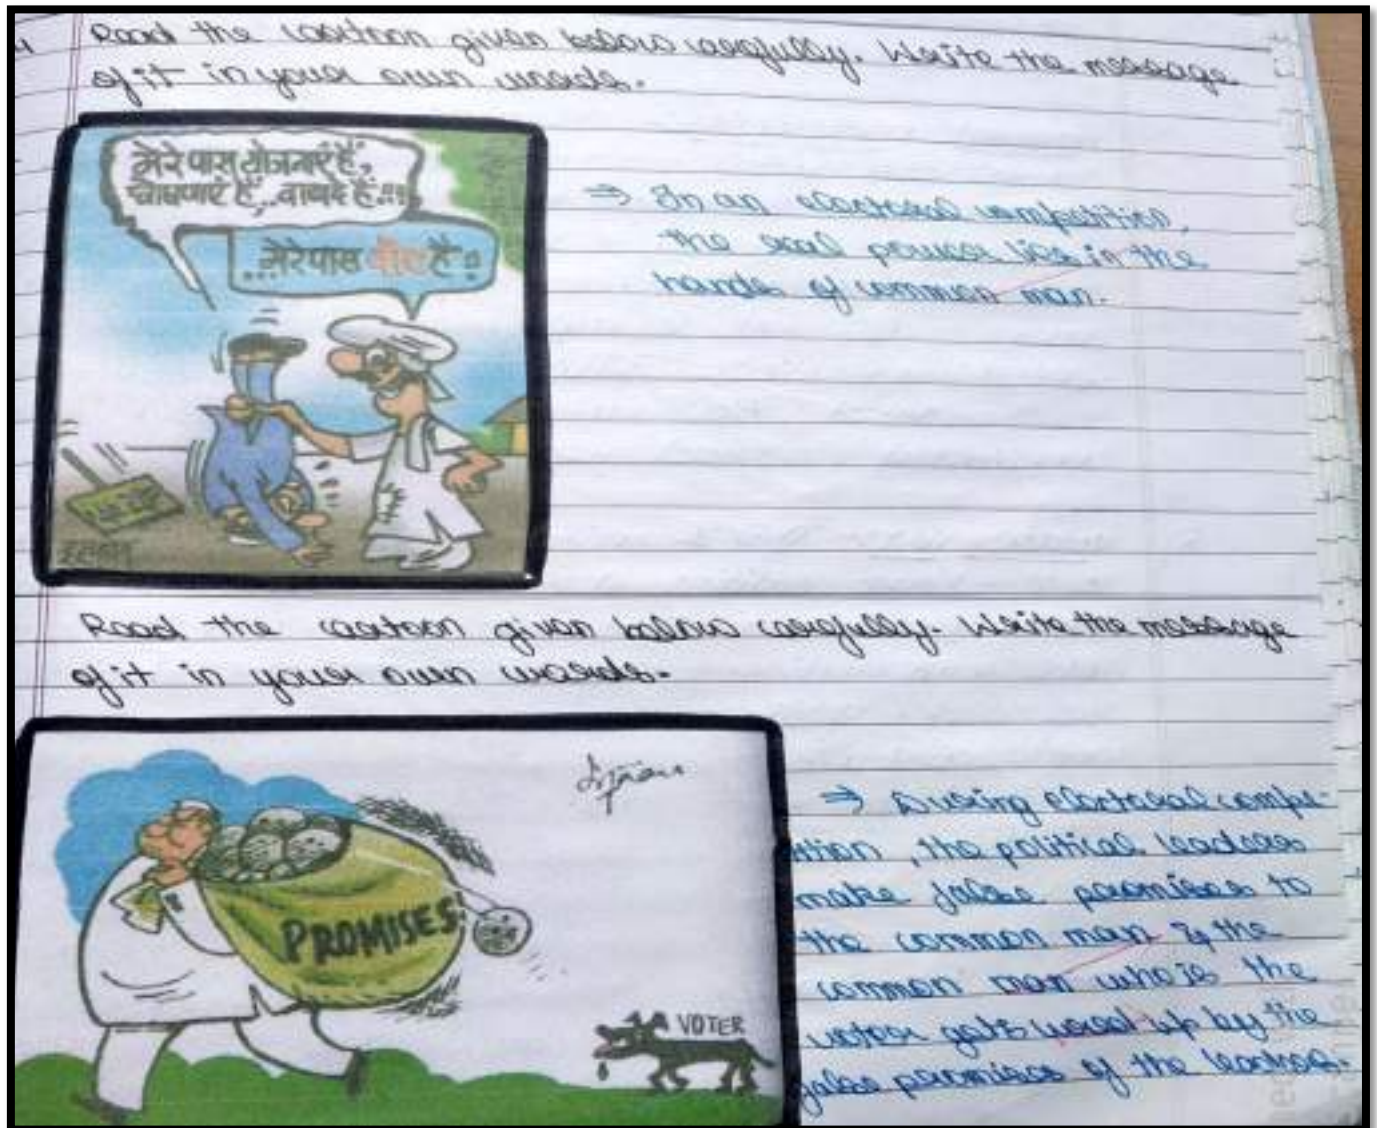 Read the cartoon given below carefully. Write the message
of it in your own words.
मेरे पास योजनाएं हैं,
घोषणाएं हैं,..वायदे हैं.!!!
...मेरे पास वोट है!!
⇒ In an electoral competition,
the real power lies in the
hands of common man.
Read the cartoon given below carefully. Write the message
of it in your own words.
PROMISES
VOTER
⇒ During electoral compe-
tition, the political leaders
make false promises to
the common man & the
common man who is the
voter gets used up by the
false promises of the leaders.